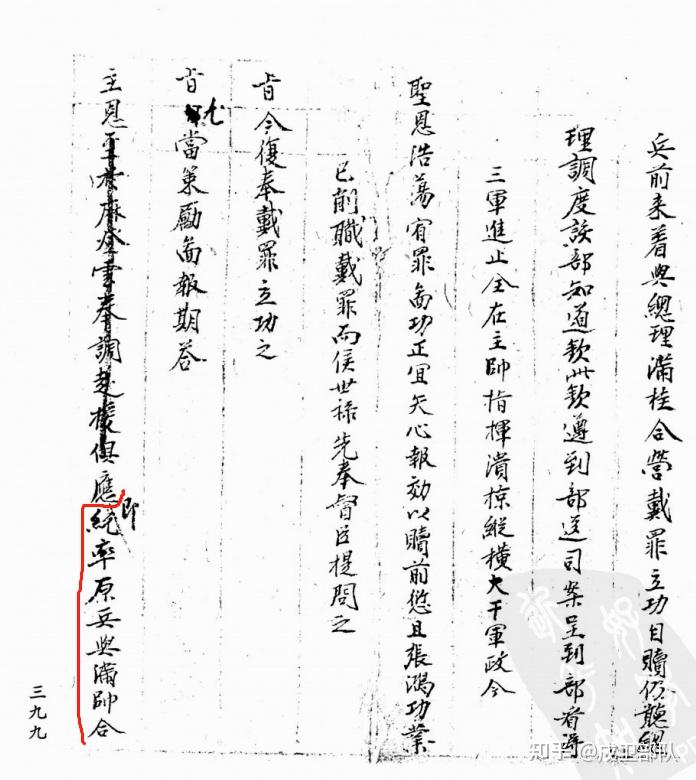 兵前来着與總理滿桂合營戴罪立功自贖仍聽總
理調度該部知道欽此欽遵到部送司案呈到部看得
三軍進止全在主帥指揮潰掠縱橫大干軍政今
聖恩浩蕩宥罪面功正宜矢心報効以贖前愆且張鴻功業
已削職戴罪而侯世祿先奉督臣提問之
旨今復奉戴罪立功之
旨尤當策勵面報期答
主恩奉調赴援俱應即統率原兵與滿帥合
三九九
知乎 @戍卫部队